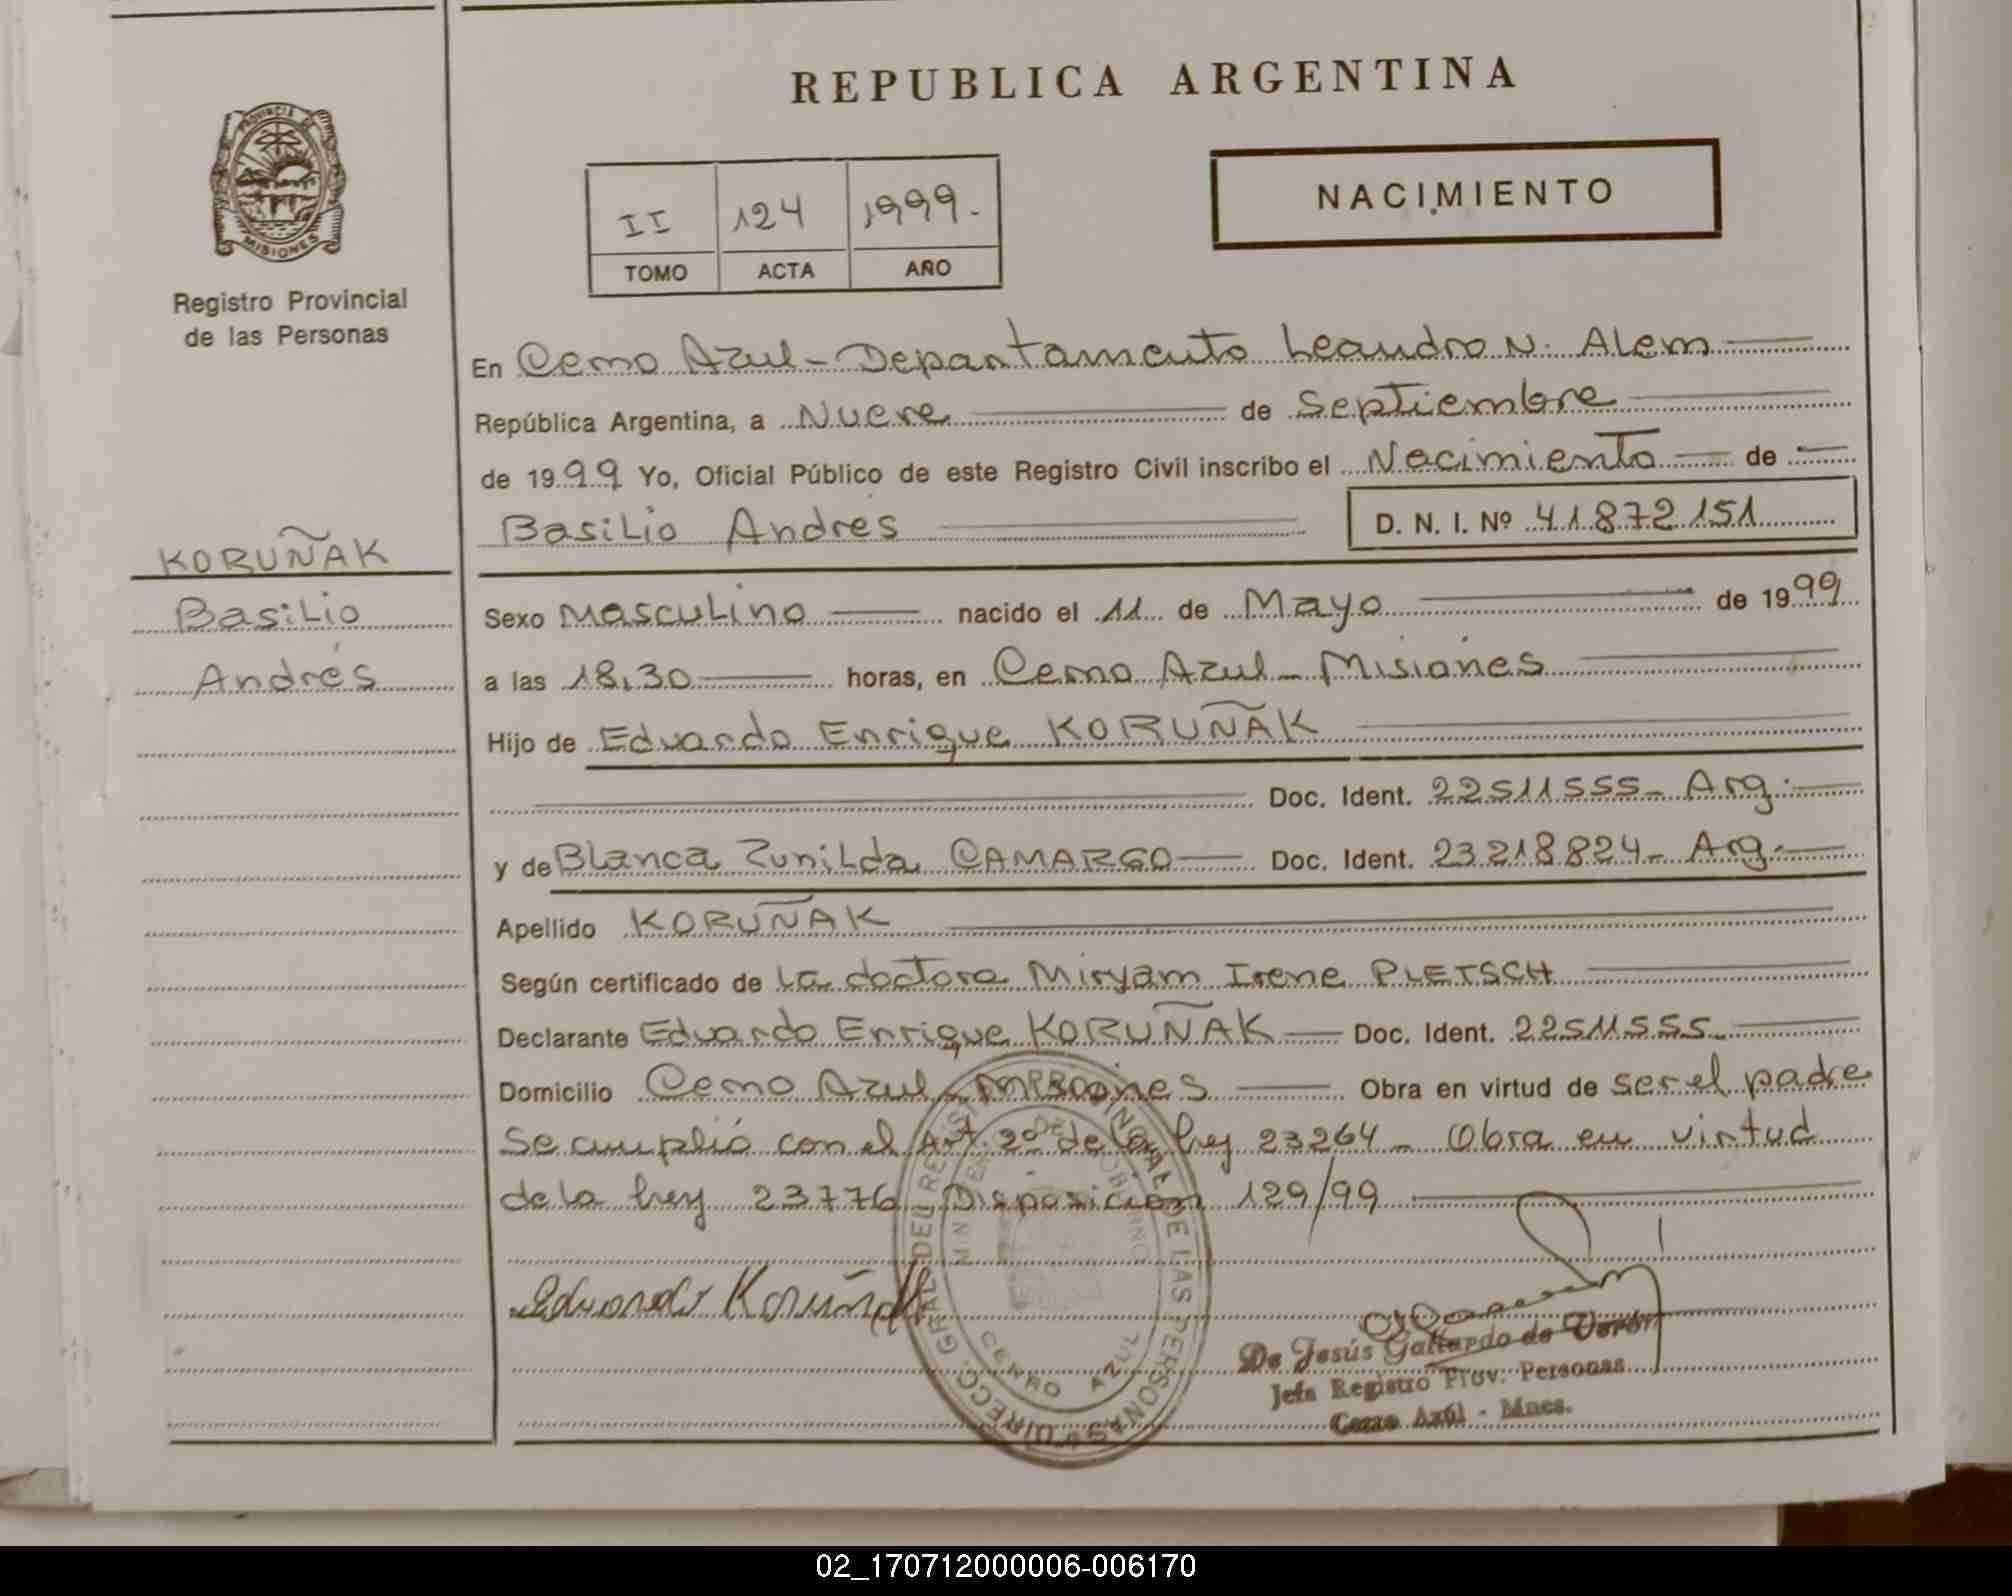 REPUBLICA ARGENTINA
PROVINCIA DE
MISIONES
Registro Provincial
de las Personas
II 124 1999.
TOMO ACTA AÑO
NACIMIENTO
En Cerro Azul - Departamento Leandro N. Alem
República Argentina, a Nueve de Septiembre
de 1999 Yo, Oficial Público de este Registro Civil inscribo el Nacimiento de
Basilio Andres D. N. I. Nº 41872151
KORUÑAK
Basilio
Andrés
Sexo Masculino nacido el 11 de Mayo de 1999
a las 18,30 horas, en Cerro Azul - Misiones
Hijo de Eduardo Enrique KORUÑAK
Doc. Ident. 22511555 - Arg.
y de Blanca Zunilda CAMARGO Doc. Ident. 23218824 - Arg.
Apellido KORUÑAK
Según certificado de la doctora Miryam Irene PLETSCH
Declarante Eduardo Enrique KORUÑAK Doc. Ident. 22511555
Domicilio Cerro Azul - Misiones Obra en virtud de ser el padre
Se cumplió con el Art. 2º de la Ley 23264 - Obra en virtud
de la Ley 23776 Disposición 129/99
Eduardo Koruñak
DIRECC. GRAL. DEL REGISTRO PROVINCIAL DE LAS PERSONAS
CERRO AZUL
De Jesús Gallardo de Verón
Jefa Registro Prov. Personas
Cerro Azul - Mnes.
02_170712000006-006170